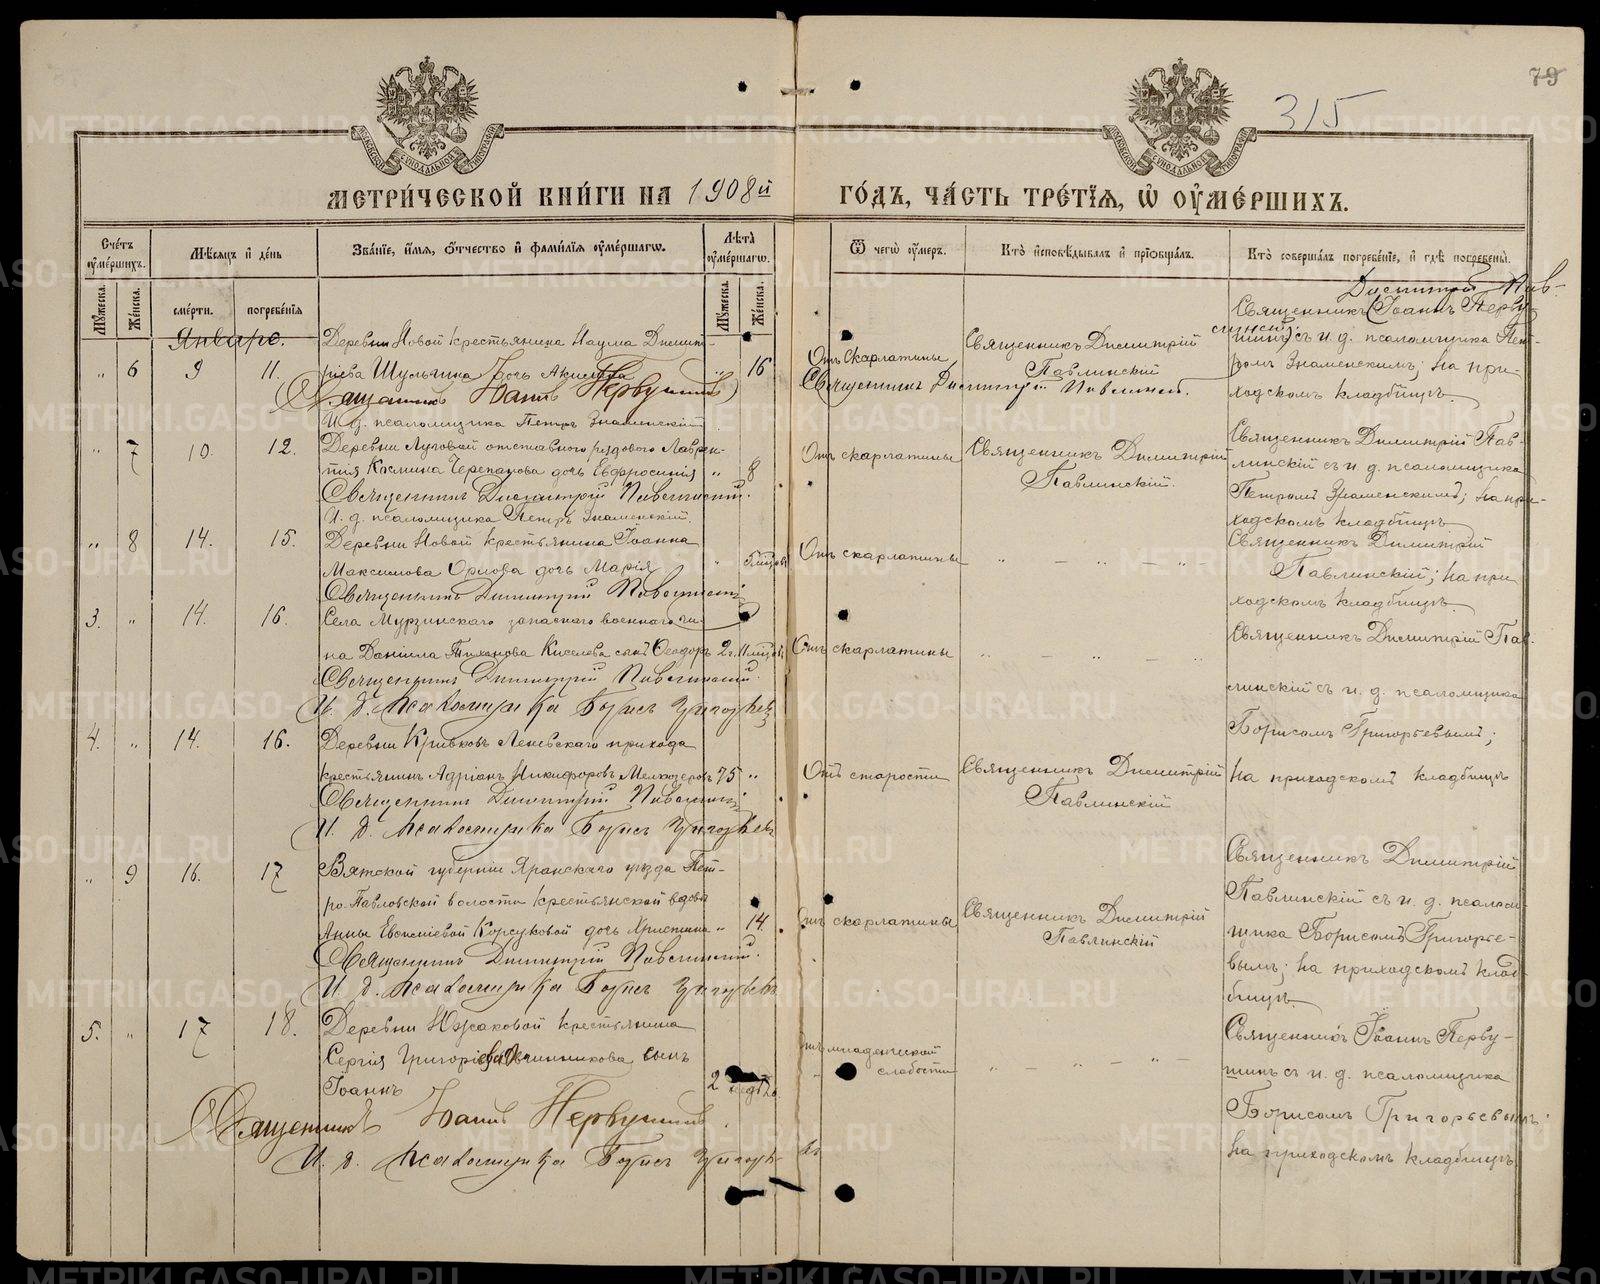 79
315
МЕТРИ́ЧЕСКОЙ КНИ́ГИ НА 1908й ГО́ДЪ, ЧА́СТЬ ТРЕ́ТЇѦ, Ѡ ОУ҆МЕ́РШИХЪ.
Сче́тъ оу҆ме́ршихъ.
Мѣ́сѧцъ и҆ де́нь
Зва́нїе, и҆́мѧ, ѻ҆́тчество и҆ фами́лїѧ оу҆ме́ршагѡ.
Лѣ́та оу҆ме́ршагѡ.
Ѿ чегѡ̀ оу҆́меръ.
Кто̀ и҆сповѣ́дывалъ и҆ прїѡбща́лъ.
Кто̀ соверша́лъ погребе́нїе, и҆ гдѣ̀ погребены̀.
Му́жеска. Же́нска. сме́рти. погребе́нїѧ Му́жеска. Же́нска.
Января.
" 6 9 11.
Деревни Новой крестьянина Наума Димит-
рiева Шульгина дочь Акилина " 16
Священникъ Іоаннъ Первушинъ
И. д. псаломщика Петръ Знаменскій
Отъ скарлатины
Священникъ Димитрій Павлинскій.
Священникъ Димитрій
Павлинскій
Димитрій Пав-
Священникъ (Іоаннъ Перву
линскій)
шинъ) съ и. д. псаломщика Пет-
ромъ Знаменскимъ; на при-
ходскомъ кладбищѣ
" 7 10. 12.
Деревни Луговой отставного рядового Лаврен-
тія Космина Черепанова дочь Евфросинія " 8
Священникъ Димитрій Павлинскій.
И. д. псаломщика Петръ Знаменскій.
Отъ скарлатины
Священникъ Димитрій
Павлинскій.
Священникъ Димитрій Пав-
линскій съ и. д. псаломщика
Петромъ Знаменскимъ; на при-
ходскомъ кладбищѣ
" 8 14. 15.
Деревни Новой крестьянина Іоанна
Максимова Орлова дочь Марія "
Священникъ Димитрій Павлинскій
Отъ скарлатины
" — " — "
Священникъ Димитрій
Павлинскій; на при
ходскомъ кладбищѣ
3. " 14. 16.
Села Мурзинскаго запаснаго военнаго чи-
на Даніила Тиханова Киселева сынъ Ѳеодоръ 2 г. 11 мѣцовъ
Священникъ Димитрій Павлинскій.
И. д. Псаломщика Борисъ Григорьевъ
Отъ скарлатины
" — " — "
Священникъ Димитрій Пав-
линскій съ и. д. псаломщика
Борисомъ Григорьевымъ;
на приходскомъ кладбищѣ
4. " 14. 16.
Деревни Кривковъ Леневскаго прихода
крестьянинъ Адріанъ Никифоровъ Мелкозеровъ 75 "
Священникъ Димитрій Павлинскій
И. д. Псаломщика Борисъ Григорьевъ
Отъ старости
Священникъ Димитрій
Павлинскій
" 9 16. 17
Вятской губерніи Яранскаго уѣзда Пет-
ро-Павловской волости крестьянской вдовы
Анны Евсеніевой Корсуковой дочь Христина " 14.
Священникъ Димитрій Павлинскій.
И. д. Псаломщика Борисъ Григорьевъ
Отъ скарлатины
Священникъ Димитрій
Павлинскій
Священникъ Димитрій
Павлинскій съ и. д. псалом-
щика Борисомъ Григорье-
вымъ; на приходскомъ клад-
бищѣ
5. " 17 18.
Деревни Южаковой крестьянина
Сергія Григоріева Овчинникова сынъ
Іоаннъ 2 недѣль
Священникъ Іоаннъ Первушинъ.
И. д. Псаломщика Борисъ Григорьевъ
Отъ младенческой
слабости
" — " — "
Священникъ Іоаннъ Перву-
шинъ съ и. д. псаломщика
Борисомъ Григорьевымъ.
на приходскомъ кладбищѣ
METRIKI.GASO-URAL.RU